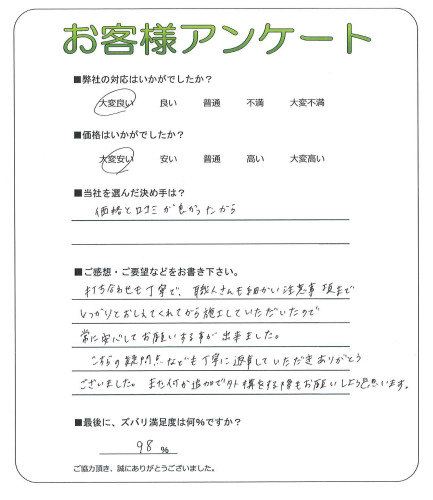 お客様アンケート
■弊社の対応はいかがでしたか？
大変良い 良い 普通 不満 大変不満
■価格はいかがでしたか？
大変安い 安い 普通 高い 大変高い
■当社を選んだ決め手は？
価格と口コミが良かったから
■ご感想・ご要望などをお書き下さい。
打ち合わせも丁寧で、職人さんも細かい注意事項まで
しっかりとおしえてくれてから施工していただいたので
常に安心してお願いする事が出来ました。
こちらの疑問点なども丁寧に返事していただきありがとう
ございました。また何か追加で外構をする際もお願いしようと思います。
■最後に、ズバリ満足度は何％ですか？
98 %
ご協力頂き、誠にありがとうございました。